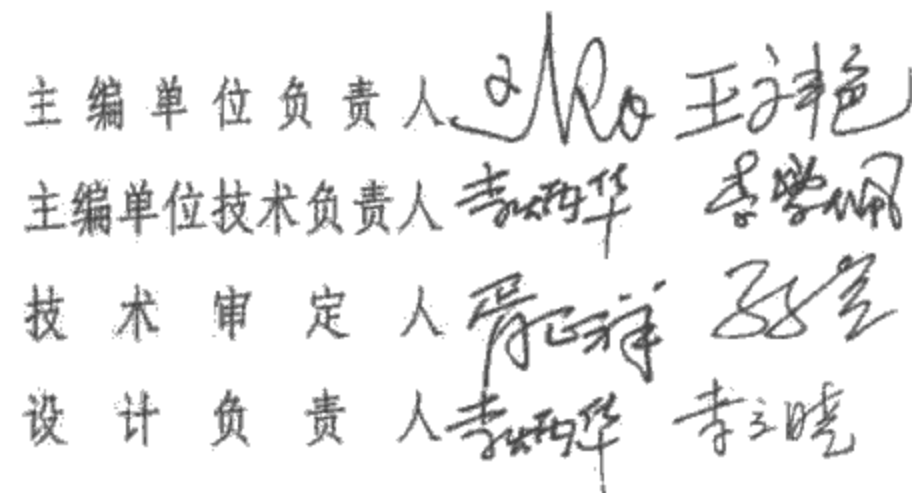 主编单位负责人 王祥艳
主编单位技术负责人 李炳华 李学佩
技术审定人 胥正祥 孙兰
设计负责人 李炳华 李立晓